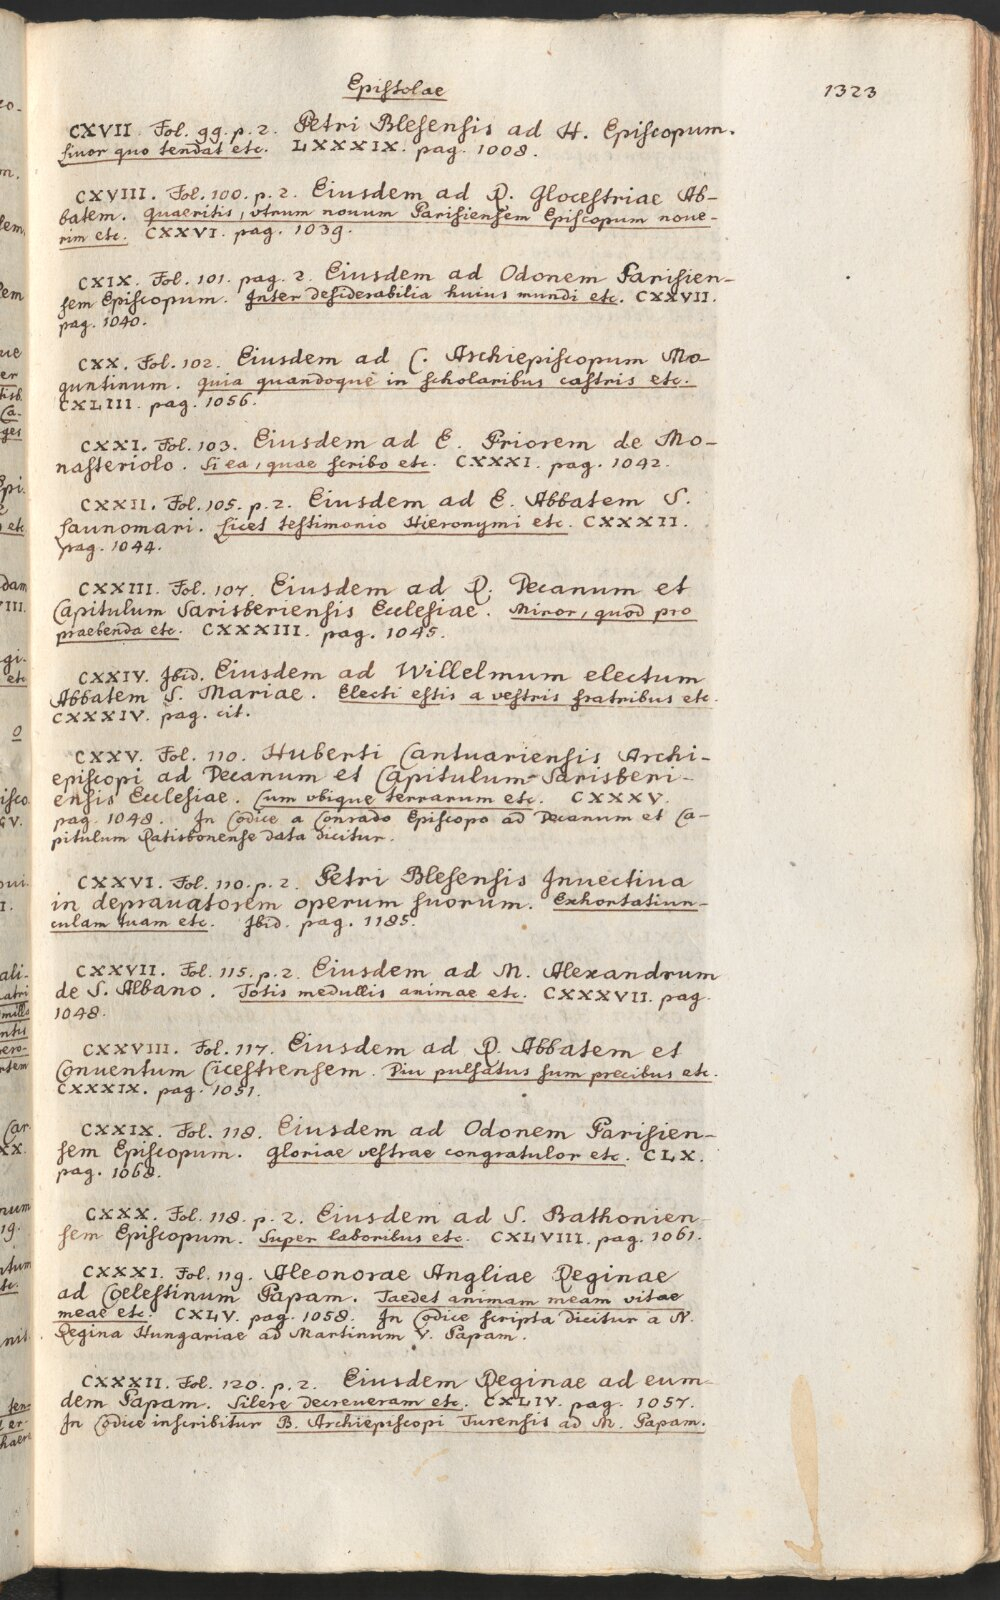 Epistolae
1323
CXVII. Fol. 99. p. 2. Petri Blesensis ad H. Episcopum.
Livor quo tendat etc. LXXXIX. pag. 1008.
CXVIII. Fol. 100. p. 2. Eiusdem ad R. Glocestriae Ab-
batem. Quaeritis, vtrum nouum Parisiensem Episcopum noue-
rim etc. CXXVI. pag. 1039.
CXIX. Fol. 101. pag. 2. Eiusdem ad Odonem Parisien-
sem Episcopum. Inter desiderabilia huius mundi etc. CXXVII.
pag. 1040.
CXX. Fol. 102. Eiusdem ad C. Archiepiscopum Mo-
guntinum. Quia quandoque in scholaribus castris etc.
CXLIII. pag. 1056.
CXXI. Fol. 103. Eiusdem ad E. Priorem de Mo-
nasteriolo. Si ea, quae scribo etc. CXXXI. pag. 1042.
CXXII. Fol. 105. p. 2. Eiusdem ad E. Abbatem S.
Launomari. Licet testimonio Hieronymi etc. CXXXII.
pag. 1044.
CXXIII. Fol. 107. Eiusdem ad R. Decanum et
Capitulum Sarisberiensis Ecclesiae. Miror, quod pro
praebenda etc. CXXXIII. pag. 1045.
CXXIV. Ibid. Eiusdem ad Willelmum electum
Abbatem S. Mariae. Electi estis a vestris fratribus etc.
CXXXIV. pag. cit.
CXXV. Fol. 110. Huberti Cantuariensis Archi-
episcopi ad Decanum et Capitulum Sarisberi-
ensis Ecclesiae. Cum vbique terrarum etc. CXXXV.
pag. 1048. In Codice a Conrado Episcopo ad Decanum et Ca-
pitulum Ratisbonense data dicitur.
CXXVI. Fol. 110. p. 2. Petri Blesensis Inuectiua
in deprauatorem operum suorum. Exhortatiun-
culam tuam etc. Ibid. pag. 1185.
CXXVII. Fol. 115. p. 2. Eiusdem ad M. Alexandrum
de S. Albano. Totis medullis animae etc. CXXXVII. pag.
1048.
CXXVIII. Fol. 117. Eiusdem ad R. Abbatem et
Conuentum Cicestrensem. Diu pulsatus sum precibus etc.
CXXXIX. pag. 1051.
CXXIX. Fol. 118. Eiusdem ad Odonem Parisien-
sem Episcopum. Gloriae vestrae congratulor etc. CLX.
pag. 1068.
CXXX. Fol. 118. p. 2. Eiusdem ad S. Bathonien-
sem Episcopum. Super laboribus etc. CXLVIII. pag. 1061.
CXXXI. Fol. 119. Aleonorae Angliae Reginae
ad Coelestinum Papam. Taedet animam meam vitae
meae etc. CXLV. pag. 1058. In Codice scripta dicitur a N.
Regina Hungariae ad Martinum V. Papam.
CXXXII. Fol. 120. p. 2. Eiusdem Reginae ad eum-
dem Papam. Silere decreueram etc. CXLIV. pag. 1057.
In Codice inscribitur B. Archiepiscopi Turensis ad M. Papam.